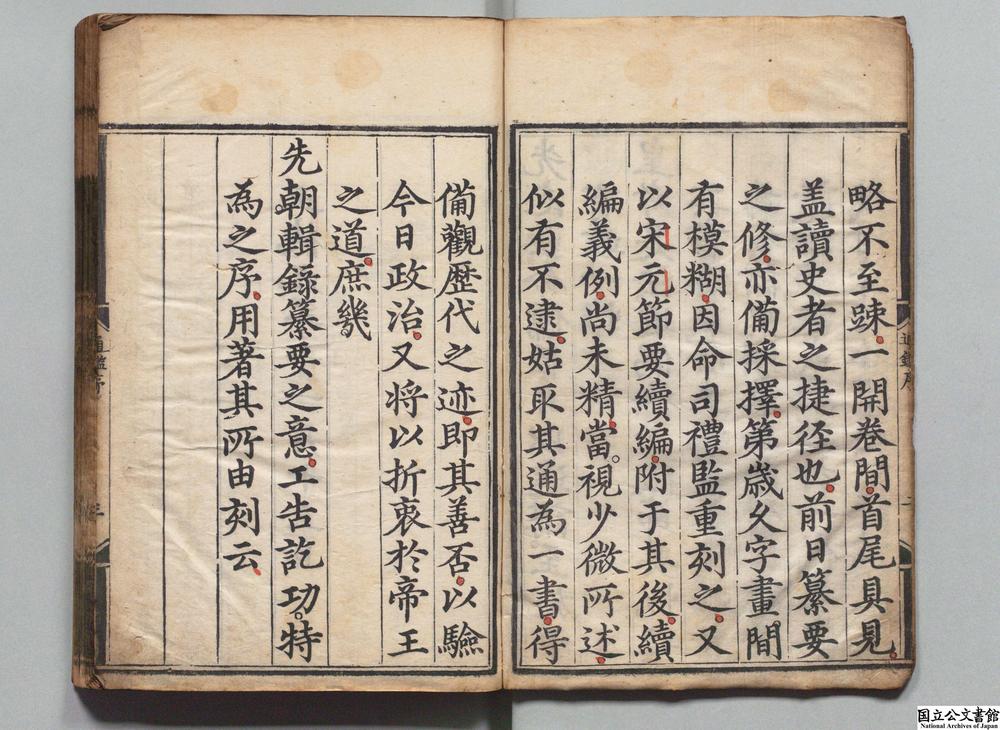 略不至踈一開卷間首尾具見
盖讀史者之捷径也前日纂要
之修亦備採擇第歲久字畫間
有模糊因命司禮監重刻之又
以宋元節要續編附于其後續
編義例尚未精當視少微所述
似有不逮姑取其通為一書得
備觀歷代之迹即其善否以驗
今日政治又将以折衷於帝王
之道庶幾
先朝輯錄纂要之意工告訖功特
為之序用著其所由刻云
通鑑序
三
国立公文書館
National Archives of Japan